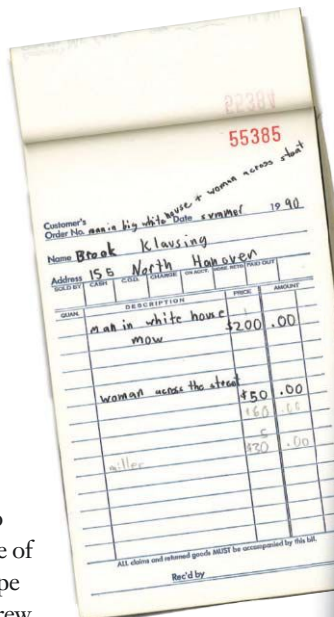 55385
Customer's
Order No. man in big white house + woman across street
Date summer 1990
Name Brook Klausing
Address 155 North Hanover
SOLD BY CASH C.O.D. CHARGE ON ACCT. MDSE. RETD. PAID OUT
QUAN. DESCRIPTION PRICE AMOUNT
man in white house $200 .00
mow
woman across the street $50 .00
$60 .00
5
$30 .00
miller
ALL claims and returned goods MUST be accompanied by this bill.
Rec'd by
e of
pe
rew